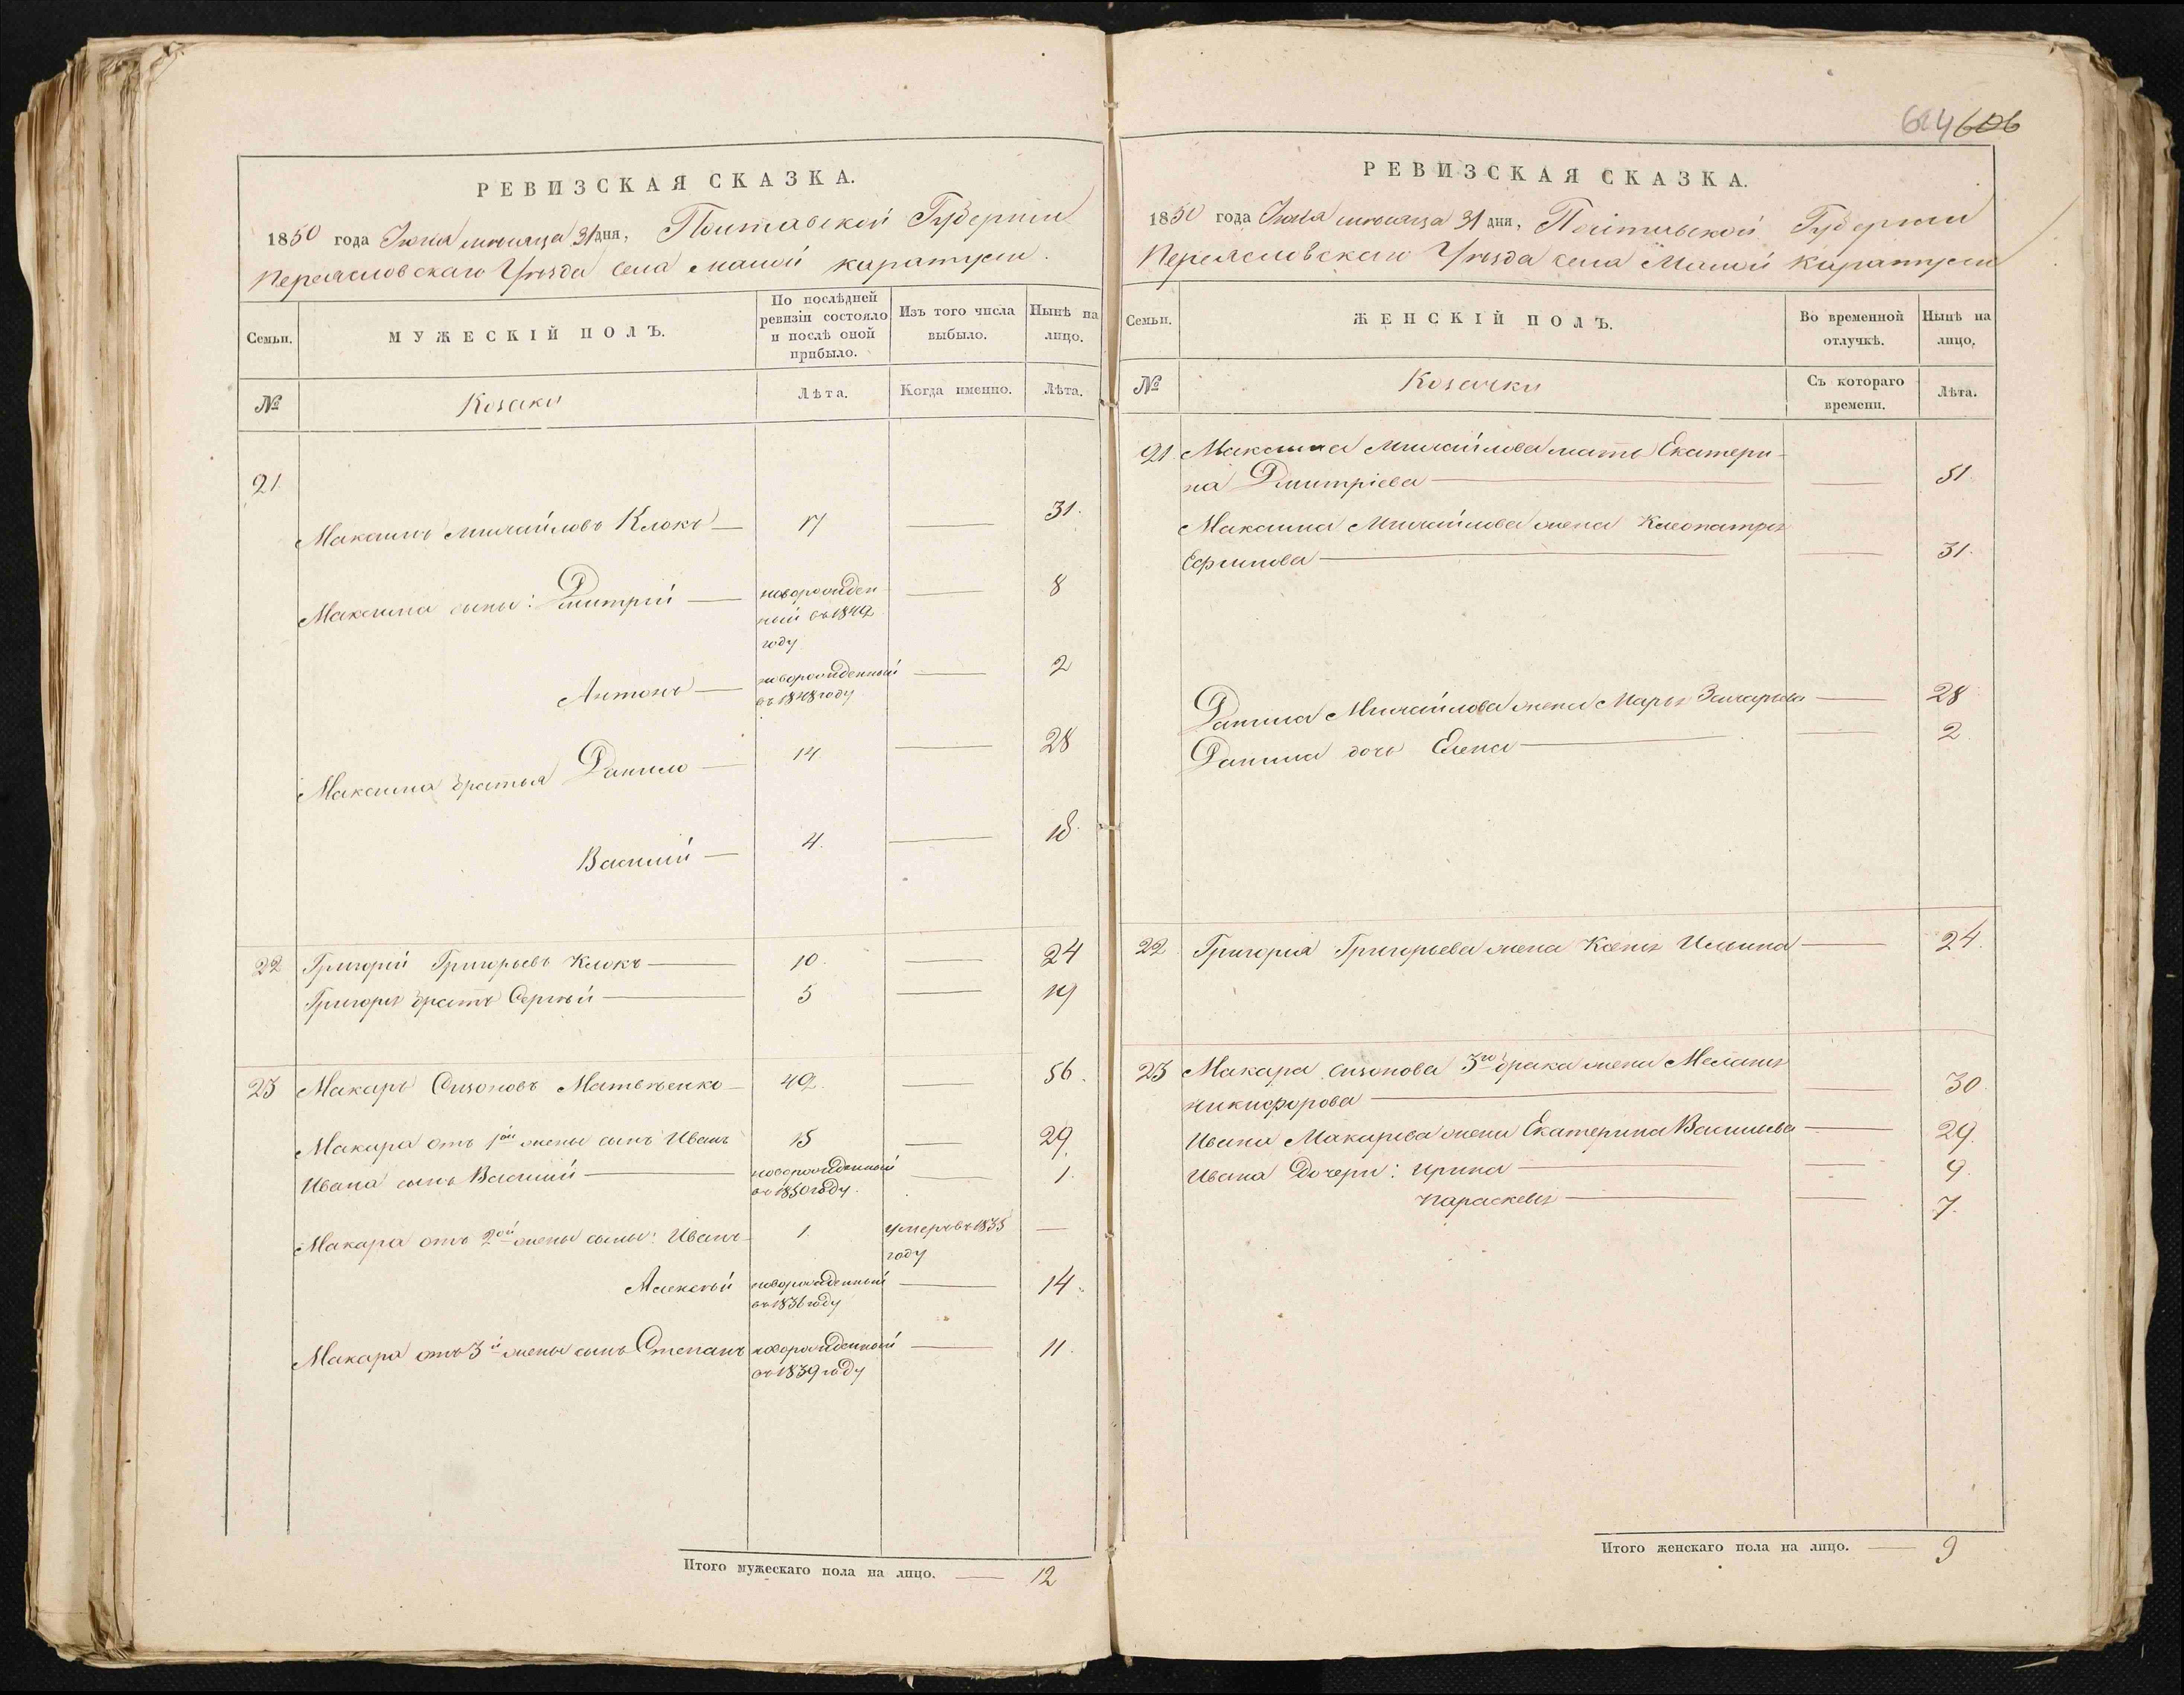 624 606
РЕВИЗСКАЯ СКАЗКА.
1850 года Июля мѣсяца 31 дня, Полтавской Губерніи
Переясловскаго Уѣзда села Малой Каратули.
Семьи.
МУЖЕСКІЙ ПОЛЪ.
По послѣдней ревизіи состояло и послѣ оной прибыло.
Изъ того числа выбыло.
Нынѣ на лицо.
№
Козаки
Лѣта.
Когда именно.
Лѣта.
21
Максимъ Михайловъ Клокъ — 17 — 31.
Максима сыны: Дмитрій — новорожден — 8
ный въ 1842
году
Антонъ — новорожденный — 2
въ 1848 году
Максима братья Данило — 14 — 28
Василій — 4. — 18.
22 Григорій Григорьевъ Клокъ — 10. — 24
Григорія братъ Сергѣй — 5 — 19
23 Макаръ Сизоновъ Матвѣенко — 42. — 56.
Макара отъ 1ой жены сынъ Иванъ 15 — 29.
Ивана сынъ Василій — новорожденный — 1.
въ 1850 году.
Макара отъ 2ой жены сыны: Иванъ 1. умеръ въ 1835 —
году
Алексѣй новорожденный — 14.
въ 1836 году
Макара отъ 3й жены сынъ Степанъ новорожденный — 11.
въ 1839 году
Итого мужескаго пола на лицо. — 12
РЕВИЗСКАЯ СКАЗКА.
1850 года Июля мѣсяца 31 дня, Полтавской Губерніи
Переясловскаго Уѣзда села Малой Каратули
Семьи.
ЖЕНСКІЙ ПОЛЪ.
Во временной отлучкѣ.
Нынѣ на лицо.
№
Козачки
Съ котораго времени.
Лѣта.
21 Максима Михайлова мать Екатери-
на Дмитріева — — 51.
Максима Михайлова жена Клеопатра
Ефимова — — 31.
Данила Михайлова жена Марья Захарьева — 28
Данила дочь Елена — — 2
22 Григорія Григорьева жена Ксенія Ильина — 24.
23 Макара Сизонова 3го брака жена Меланія
Никифорова — — 30
Ивана Макарьева жена Екатерина Васильева — 29.
Ивана Дочери: Ирина — — 9.
Параскевія — — 7.
Итого женскаго пола на лицо. — 9